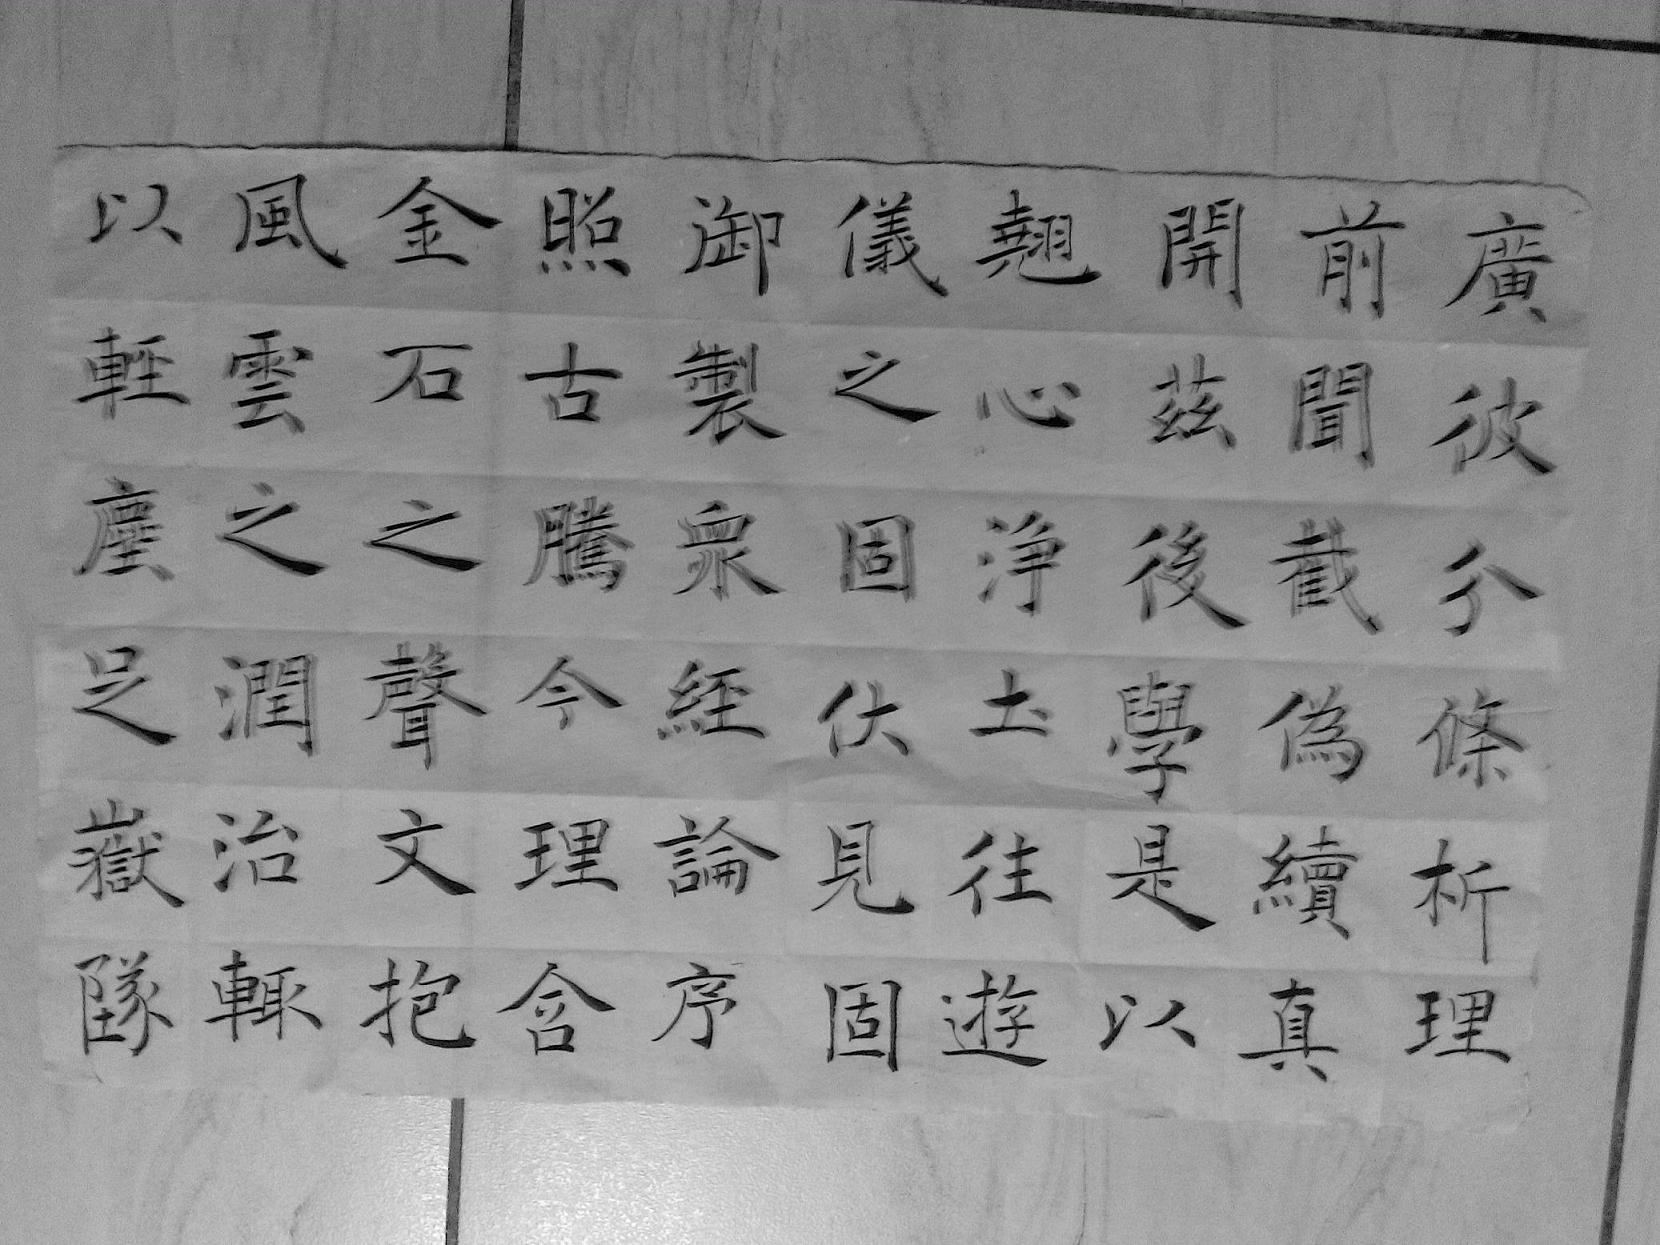 廣彼分條析理
前聞截偽續真
開茲後學是以
翹心淨土往遊
儀之固伏見固
御製眾經論序
照古騰今理含
金石之聲文抱
風雲之潤治輒
以輕塵足嶽墜